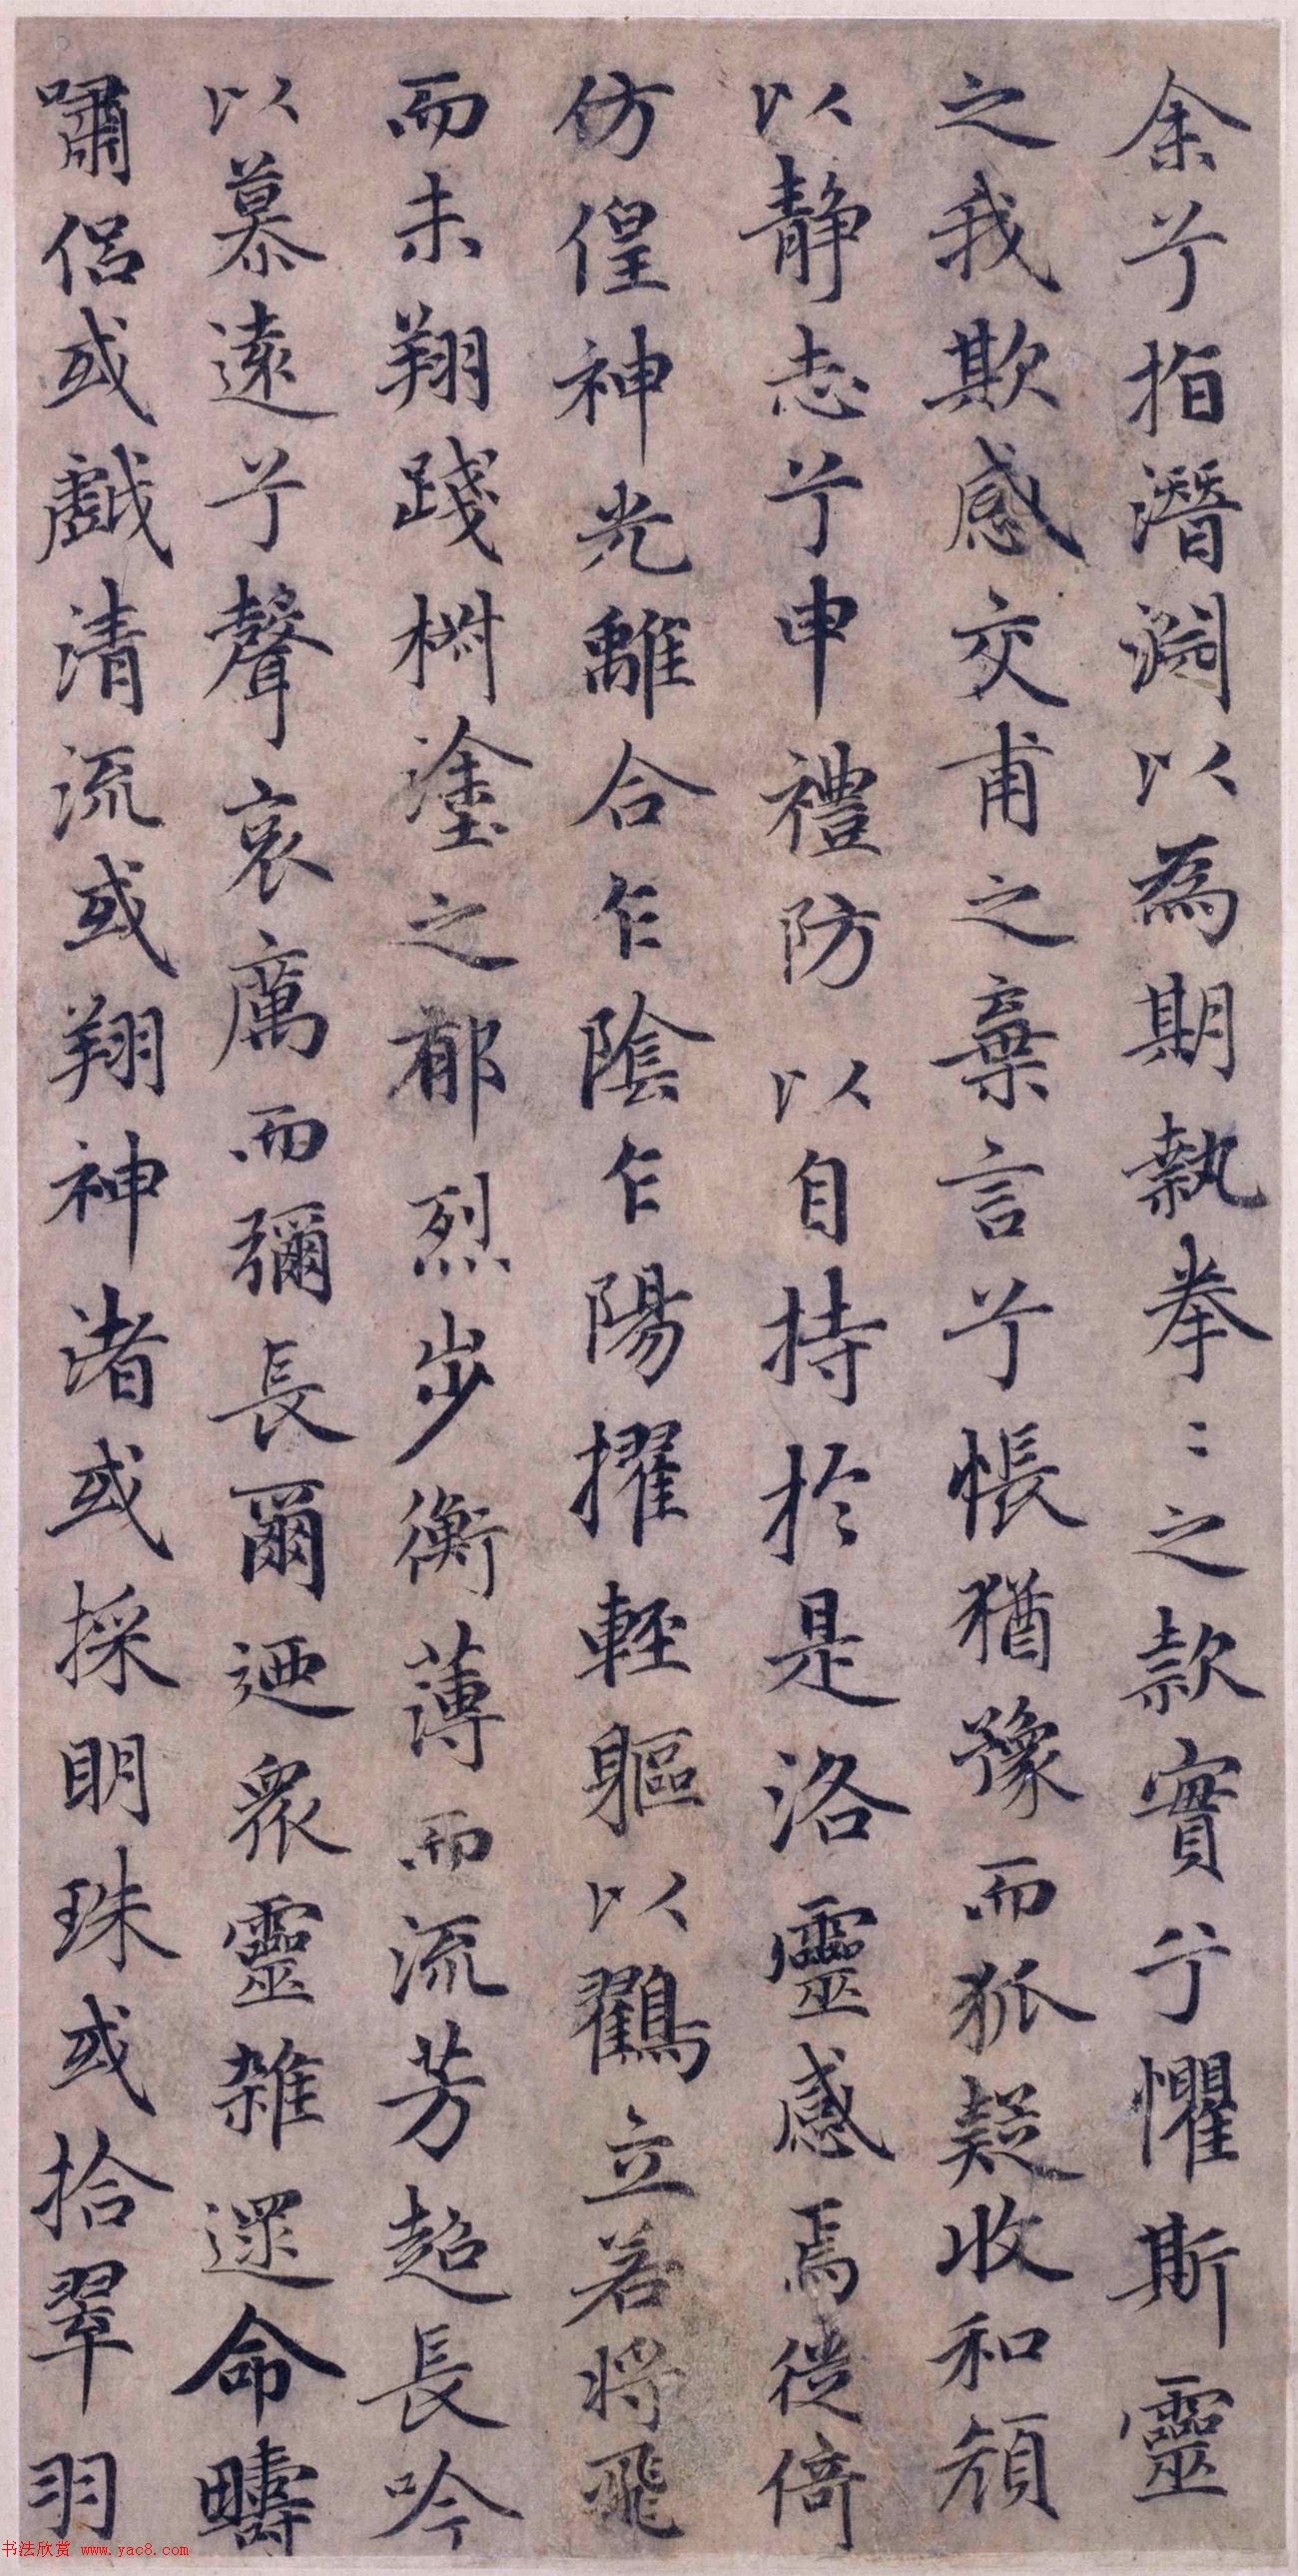 余兮指潛淵以為期執拳〻之款實兮懼斯靈
之我欺感交甫之棄言兮悵猶豫而狐疑收和顏
以靜志兮申禮防以自持於是洛靈感焉徙倚
仿偟神光離合乍陰乍陽擢輕軀以鸛立若將飛
而未翔踐椒塗之郁烈步衡薄而流芳超長吟
以慕遠兮聲哀厲而彌長爾迺衆靈雜遝命疇
嘯侶或戲清流或翔神渚或採明珠或拾翠羽
书法欣赏 www.yac8.com